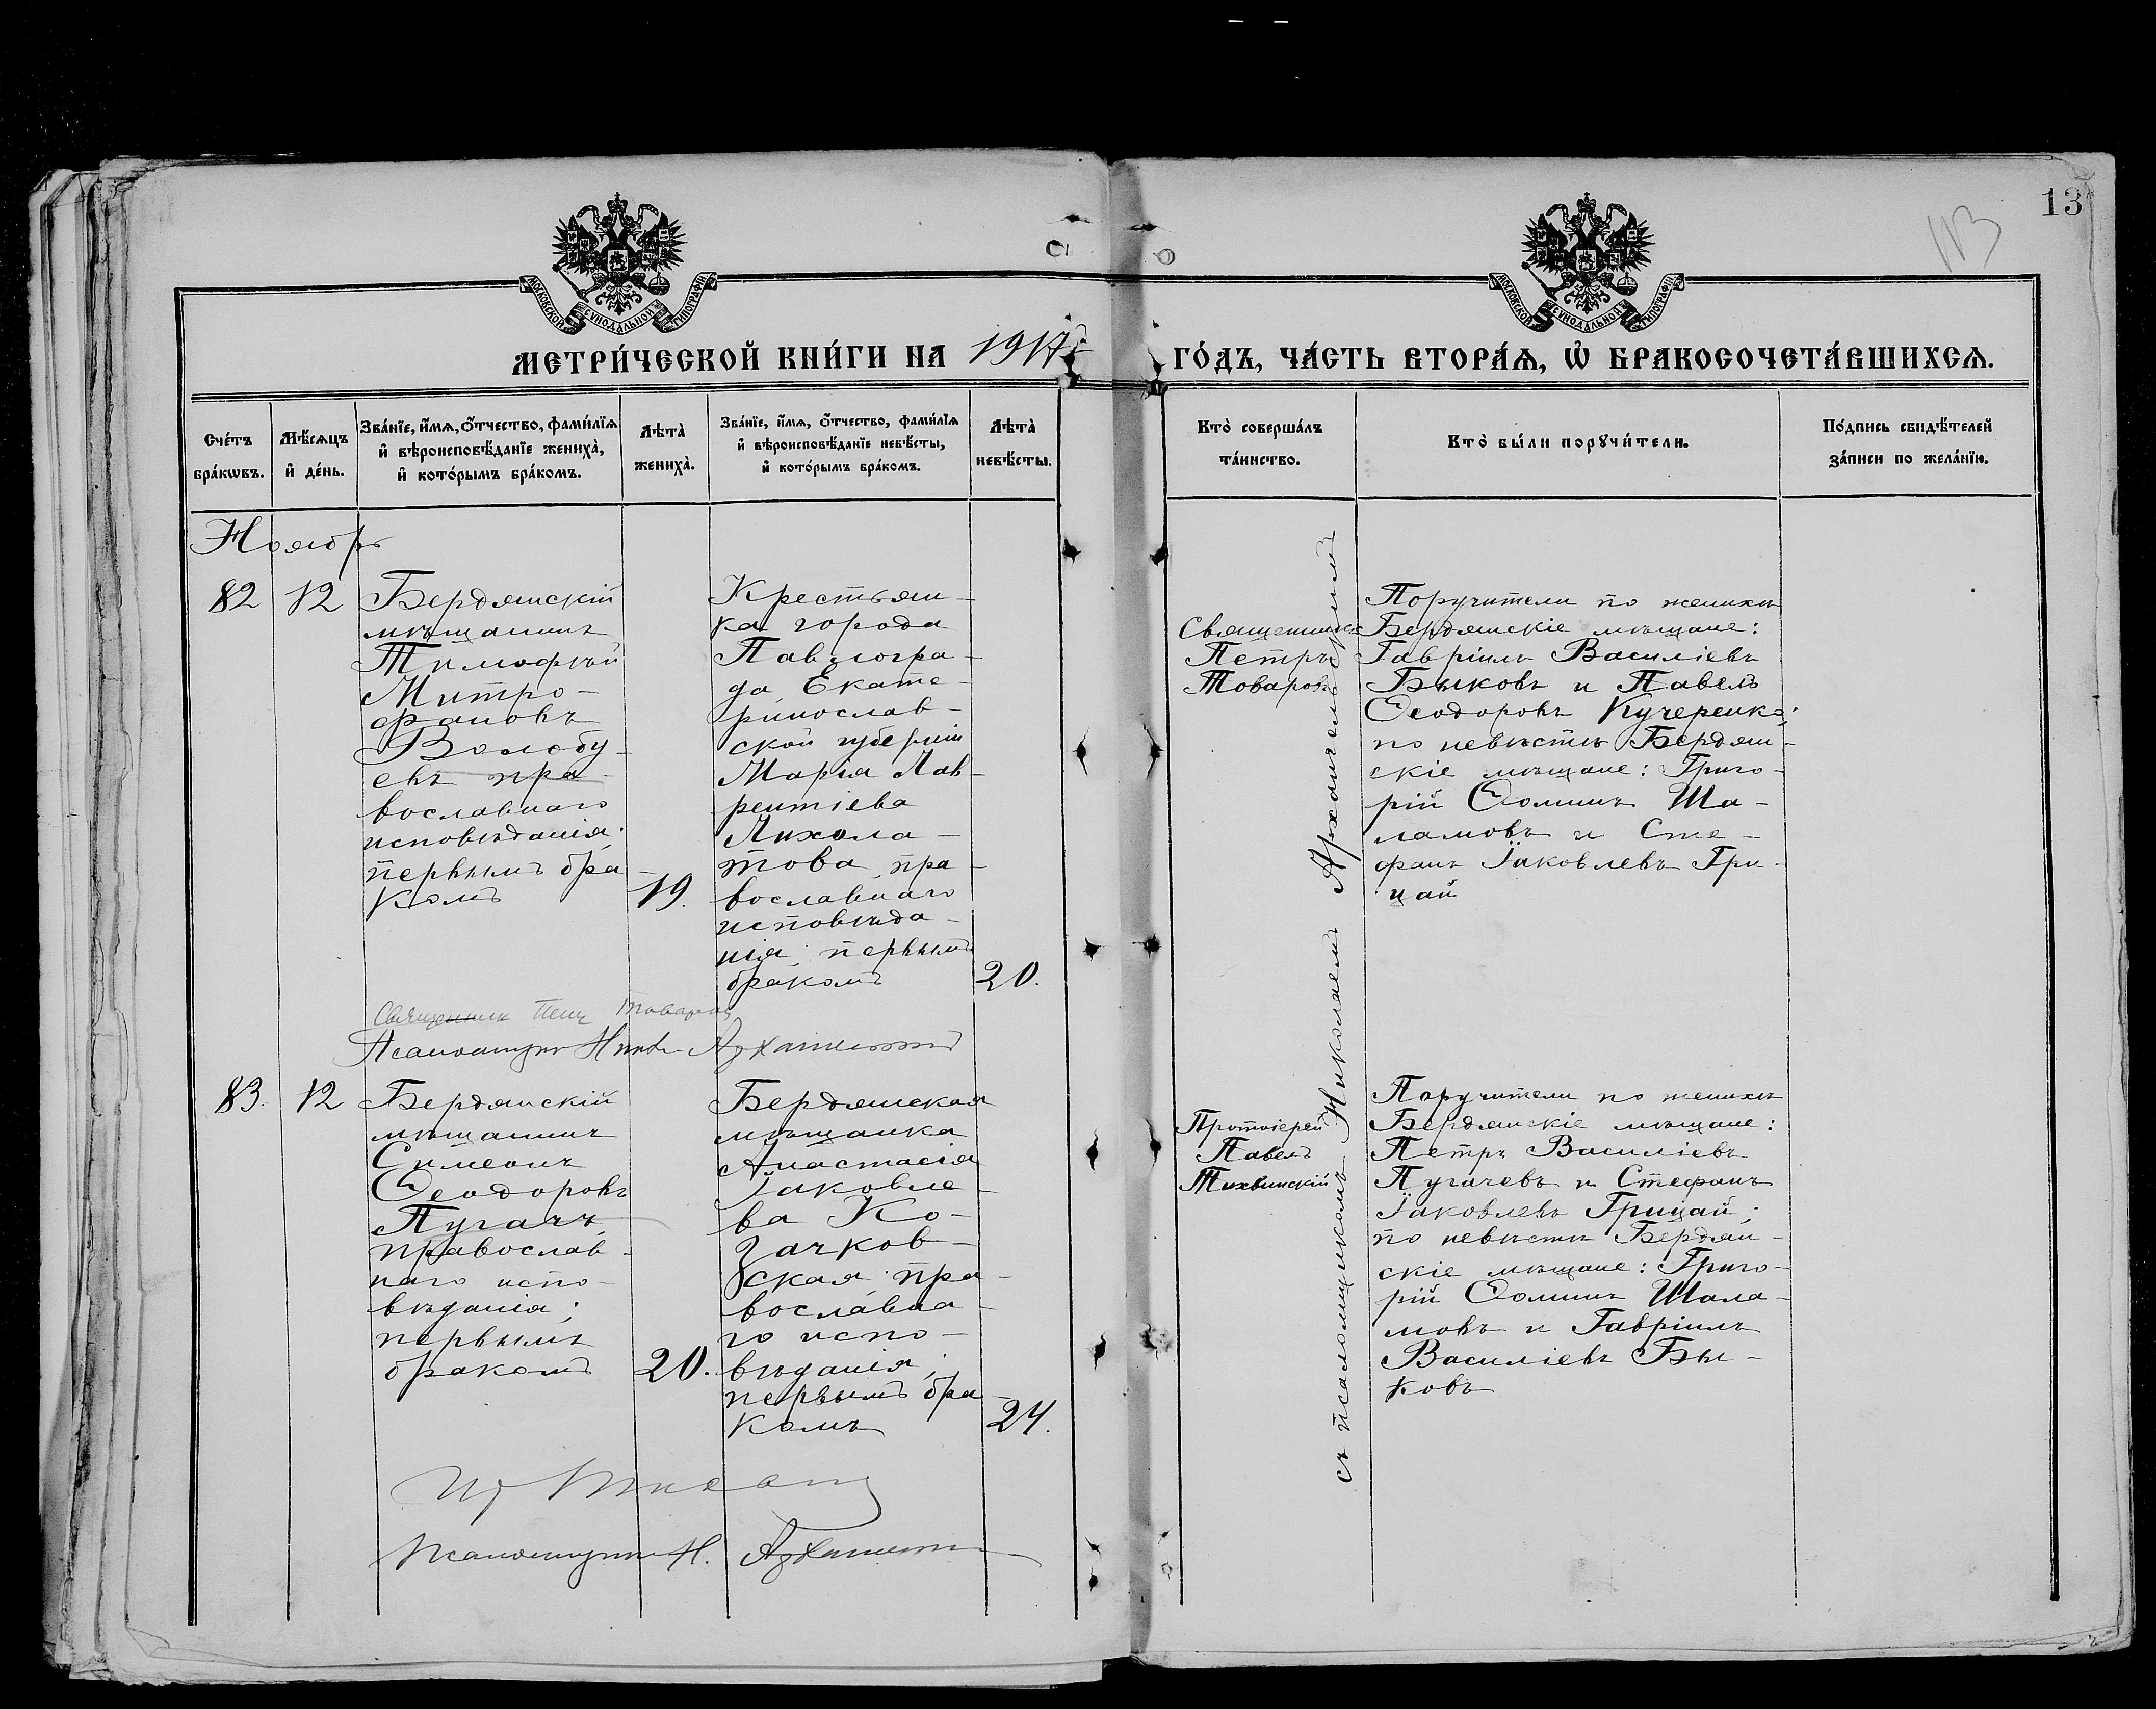 13
113
МОСКОВСКОЙ СУНОДАЛЬНОЙ ТИПОГРАФІИ
МОСКОВСКОЙ СУНОДАЛЬНОЙ ТИПОГРАФІИ
МЕТРИ́ЧЕСКОЙ КНИ́ГИ НА 1917 ГО́ДЪ, ЧА́СТЬ ВТОРА́Ѧ, Ѡ҆ БРАКОСОЧЕТА́ВШИХСѦ.
Сче́тъ бра́кѡвъ.
Мѣ́сѧцъ и҆ де́нь.
Зва́нїе, и҆́мѧ, ѻ҆́тчество, фами́лїѧ
и҆ вѣроисповѣ́данїе жениха̀,
и҆ кото́рымъ бра́комъ.
Лѣта̀ жениха̀.
Зва́нїе, и҆́мѧ, ѻ҆́тчество, фами́лїѧ
и҆ вѣроисповѣ́данїе невѣ́сты,
и҆ кото́рымъ бра́комъ.
Лѣта̀ невѣ́сты.
Кто̀ соверша́лъ
та́инство.
Кто̀ бы́ли порꙋчи́тели.
По́дпись свидѣ́телей
за́писи по жела́нїю.
Ноябрь
82
12
Бердянскій
мѣщанинъ
Тимофѣй
Митро-
фановъ
Волобу-
евъ пра-
вославнаго
исповѣданія;
первымъ бра-
комъ
19.
Крестьян-
ка города
Павлогра-
да, Екате-
ринослав-
ской губерніи
Марія Лав-
рентіева
Лихола-
това, пра-
вославнаго
исповѣда-
нія; первымъ
бракомъ
20.
Священникъ
Петръ
Товаровъ
Поручители по женихѣ
Бердянскіе мѣщане:
Гавріилъ Василіевъ
Быковъ и Павелъ
Ѳеодоровъ Кучеренко;
по невѣстѣ Бердян-
скіе мѣщане: Григо-
рій Ѳоминъ Ша-
ламовъ и Сте-
фанъ Іаковлевъ Гри-
цай
Священникъ Петр Товаров
Псаломщикъ Архангельскій
83.
12
Бердянскій
мѣщанинъ
Симеонъ
Ѳеодоровъ
Пугачъ,
православ-
наго испо-
вѣданія;
первымъ
бракомъ
20.
Бердянская
мѣщанка
Анастасія
Іаковле-
ва Ко-
зачков-
ская, пра-
вославна-
го испо-
вѣданія;
первымъ бра-
комъ
24.
Протоіерей
Павелъ
Тихвинскій
съ псаломщикомъ Николаемъ Архангельскимъ
Поручители по женихѣ
Бердянскіе мѣщане:
Петръ Василіевъ
Пугачевъ и Стефанъ
Іаковлевъ Грицай;
по невѣстѣ Бердян-
скіе мѣщане: Григо-
рій Ѳоминъ Шала-
мовъ и Гавріилъ
Василіевъ Бы-
ковъ
Псаломщикъ Н. Архангельскій